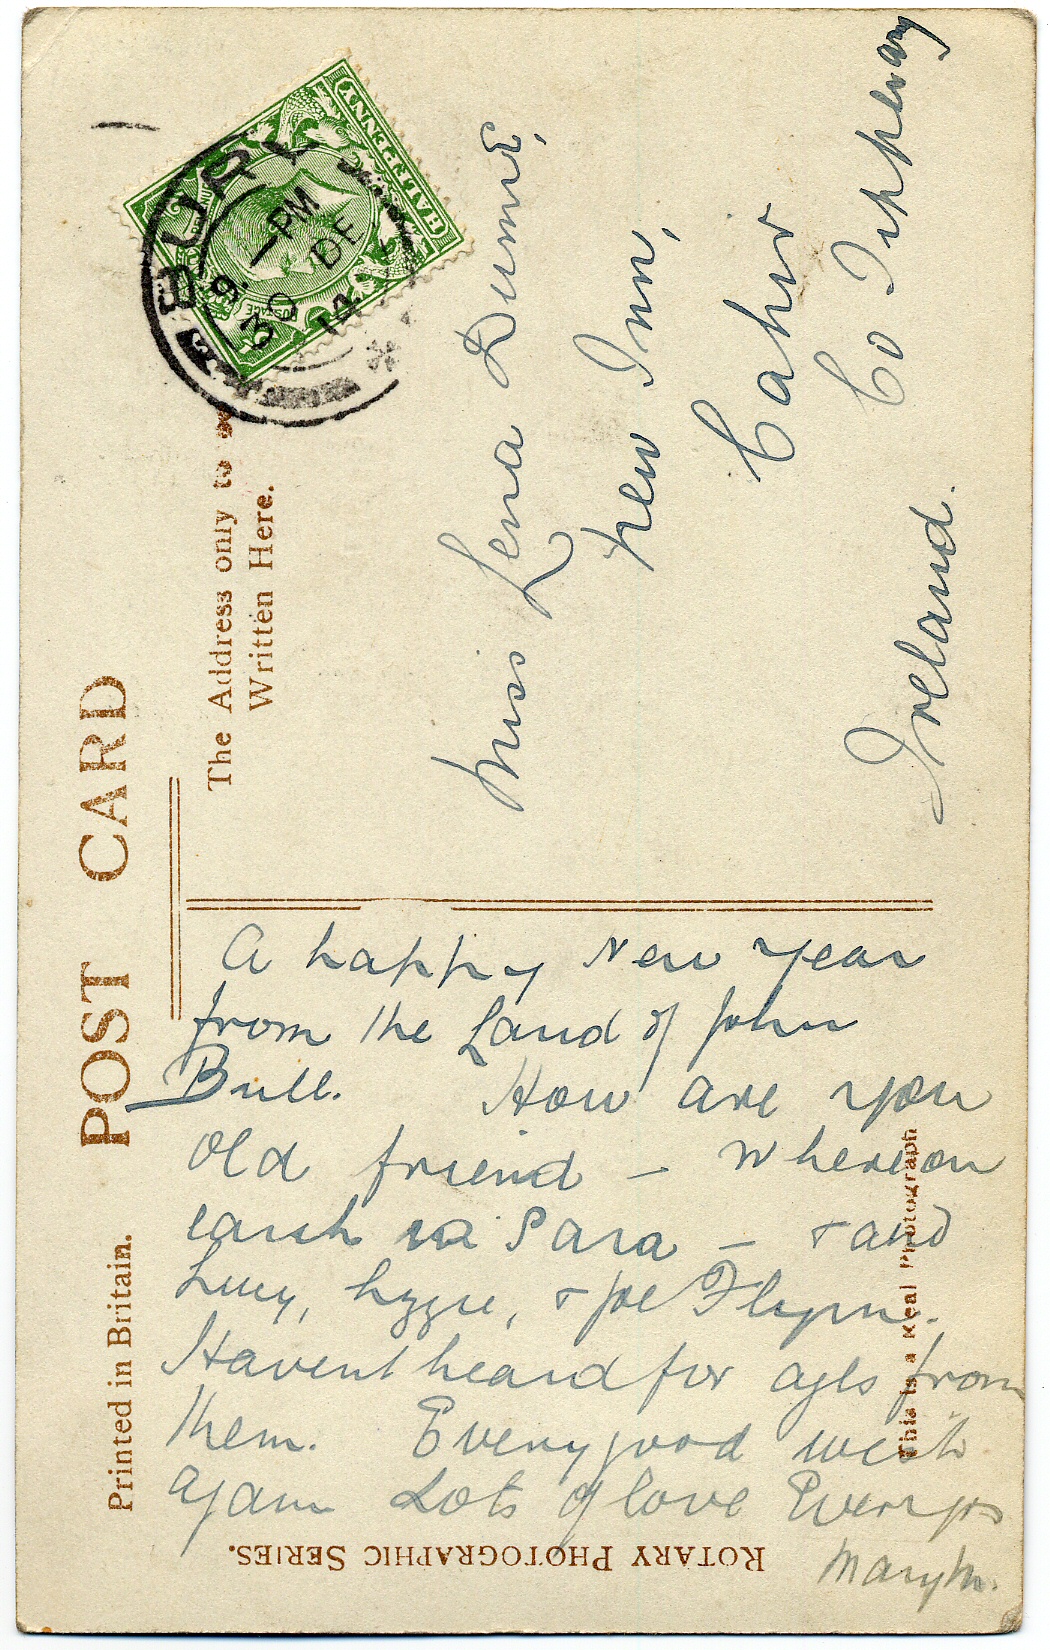 POST CARD
Printed in Britain.
The Address only to be
Written Here.
HALFPENNY
POSTAGE
BURY
9 - PM
30 DE
14
Miss Lena Dunne,
New Inn,
Cahir
Co Tipperary
Ireland.
A happy New Year
from the Land of John
Bull. How are you
old friend – Where on
earth is Sara – & and
Lucy, Lizzie, & Joe Flynn.
Havent heard for ages from
them. Every good wish
again Lots of love Ever yrs
Mary M.
This is a Real Photograph
ROTARY PHOTOGRAPHIC SERIES.